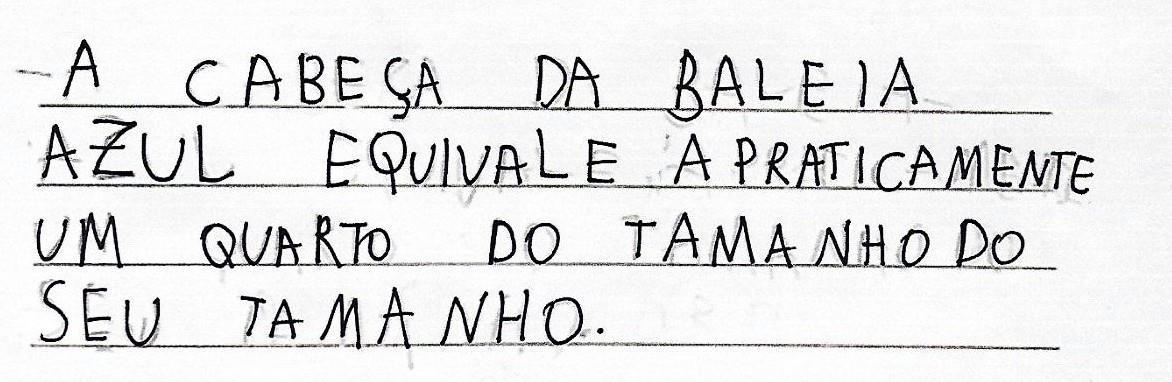 - A CABEÇA DA BALEIA
AZUL EQUIVALE A PRATICAMENTE
UM QUARTO DO TAMANHO DO
SEU TAMANHO.